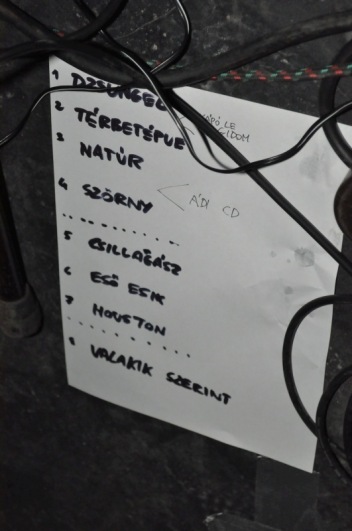 1 DZSUNGEL
2 TÉRBETÉPUF
LE
3 NATÚR
4 SZÖRNY
ÁDI CD
5 CSILLAGÁSZ
6 ESŐ ESIK
7 HOUSTON
8 VALAKIK SZERINT